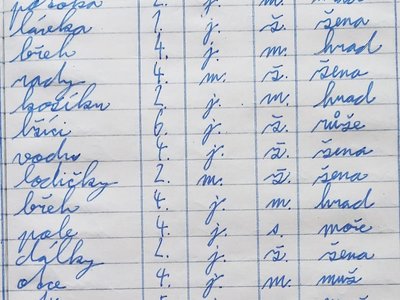 2. j. m.
lávka 1. j. ž. žena
břeh 4. j. m. hrad
rady 4. m. ž. žena
košíku 2. j. m. hrad
lžíci 6. j. ž. růže
vodu 4. j. ž. žena
lodičky 2. m. ž. žena
břeh 4. j. m. hrad
pole 4. j. s. moře
dálky 2. j. ž. žena
otce 4. j. m. muž